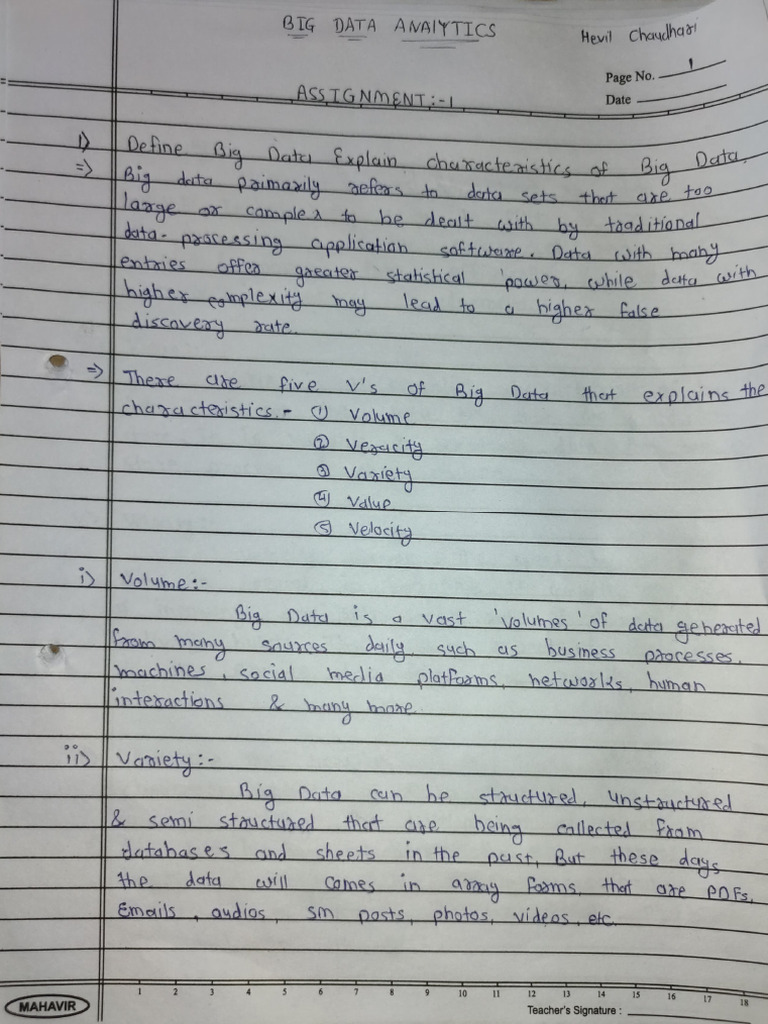 BIG DATA ANALYTICS
Hevil Chaudhari
Page No. 1
ASSIGNMENT:-1
Date
1) Define Big Data Explain characteristics of Big Data.
=> Big data primarily refers to data sets that are too
large or complex to be dealt with by traditional
data-processing application software. Data with many
entries offer greater statistical power, while data with
higher complexity may lead to a higher false
discovery rate.
=> There are five V's of Big Data that explains the
characteristics.- ① Volume
② Veracity
③ Variety
④ Value
⑤ Velocity
i) Volume:-
Big Data is a vast 'volumes' of data generated
from many sources daily, such as business processes,
machines, social media platforms, networks, human
interactions & many more.
ii) Variety:-
Big Data can be structured, unstructured
& semi structured that are being collected from
databases and sheets in the past, But these days
the data will comes in array forms, that are PDFs,
Emails, audios, sm posts, photos, videos, etc.
MAHAVIR
1 2 3 4 5 6 7 8 9 10 11 12 13 14 15 16 17 18
Teacher's Signature :